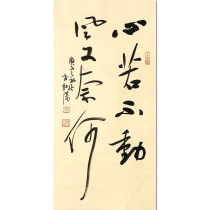 心若不動
風又奈何